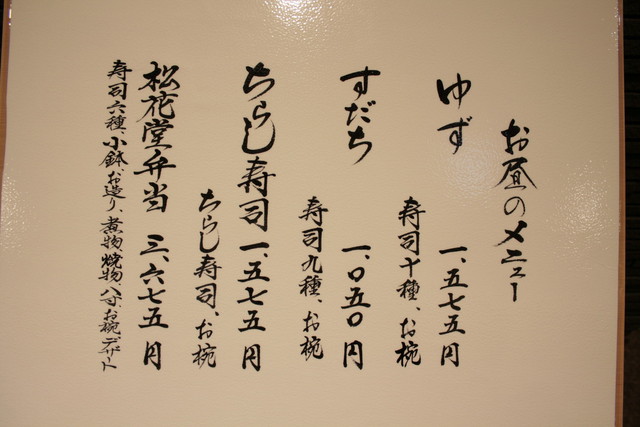 お昼のメニュー
ゆず 一、五七五円
寿司十種、お椀
すだち 一、〇五〇円
寿司九種、お椀
ちらし寿司 一、五七五円
ちらし寿司、お椀
松花堂弁当 三、六七五円
寿司六種、小鉢、お造り、煮物、焼物、八寸、お椀、デザート